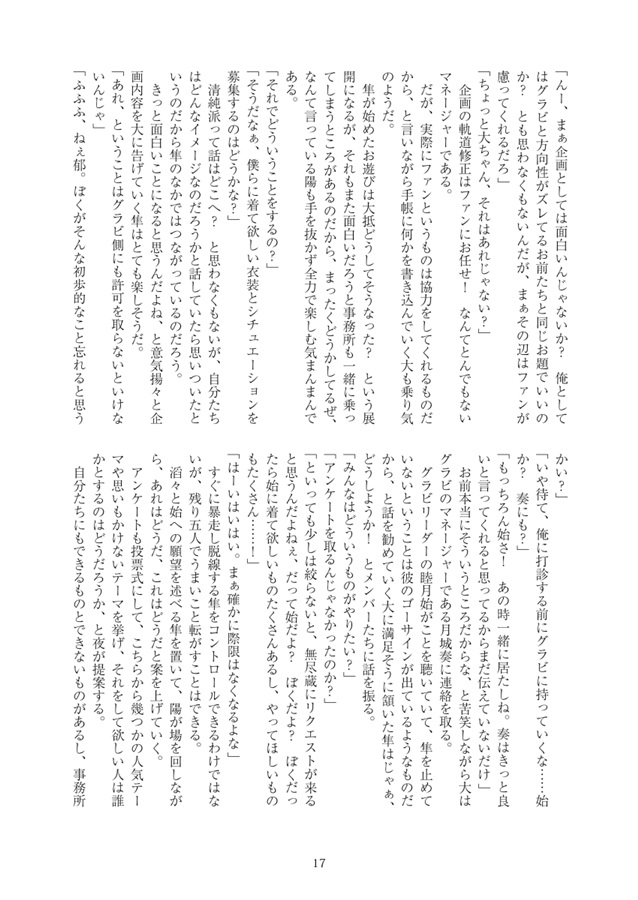 「んー、まぁ企画としては面白いんじゃないか？　俺として
はグラビと方向性がズレてるお前たちと同じお題でいいの
か？　とも思わなくもないんだが、まぁその辺はファンが
慮ってくれるだろ」
「ちょっと大ちゃん、それはあれじゃない？」
　企画の軌道修正はファンにお任せ！　なんてとんでもない
マネージャーである。
　だが、実際にファンというものは協力をしてくれるものだ
から、と言いながら手帳に何かを書き込んでいく大も乗り気
のようだ。
　隼が始めたお遊びは大抵どうしてそうなった？　という展
開になるが、それもまた面白いだろうと事務所も一緒に乗っ
てしまうところがあるのだから、まったくどうかしてるぜ、
なんて言っている陽も手を抜かず全力で楽しむ気まんまんで
ある。
「それでどういうことをするの？」
「そうだなぁ、僕らに着て欲しい衣装とシチュエーションを
募集するのはどうかな？」
　清純派って話はどこへ？　と思わなくもないが、自分たち
はどんなイメージなのだろうかと話していたら思いついたと
いうのだから隼のなかではつながっているのだろう。
　きっと面白いことになると思うんだよね、と意気揚々と企
画内容を大に告げていく隼はとても楽しそうだ。
「あれ、ということはグラビ側にも許可を取らないといけな
いんじゃ」
「ふふふ、ねぇ郁。ぼくがそんな初歩的なこと忘れると思う
かい？」
「いや待て、俺に打診する前にグラビに持っていくな……始
か？　奏にも？」
「もっちろん始さ！　あの時一緒に居たしね。奏はきっと良
いと言ってくれると思ってるからまだ伝えていないだけ」
　お前本当にそういうところだからな、と苦笑しながら大は
グラビのマネージャーである月城奏に連絡を取る。
　グラビリーダーの睦月始がことを聴いていて、隼を止めて
いないということは彼のゴーサインが出ているようなものだ
から、と話を勧めていく大に満足そうに頷いた隼はじゃぁ、
どうしようか！　とメンバーたちに話を振る。
「みんなはどういうものがやりたい？」
「アンケートを取るんじゃなかったのか？」
「といっても少しは絞らないと、無尽蔵にリクエストが来る
と思うんだよねぇ、だって始だよ？　ぼくだよ？　ぼくだっ
たら始に着て欲しいものたくさんあるし、やってほしいもの
もたくさん……！」
「はーいはいはい。まぁ確かに際限はなくなるよな」
　すぐに暴走し脱線する隼をコントロールできるわけではな
いが、残り五人でうまいこと転がすことはできる。
　滔々と始への願望を述べる隼を置いて、陽が場を回しなが
ら、あれはどうだ、これはどうだと案を上げていく。
　アンケートも投票式にして、こちらから幾つかの人気テー
マや思いもかけないテーマを挙げ、それをして欲しい人は誰
かとするのはどうだろうか、と夜が提案する。
　自分たちにもできるものとできないものがあるし、事務所
17